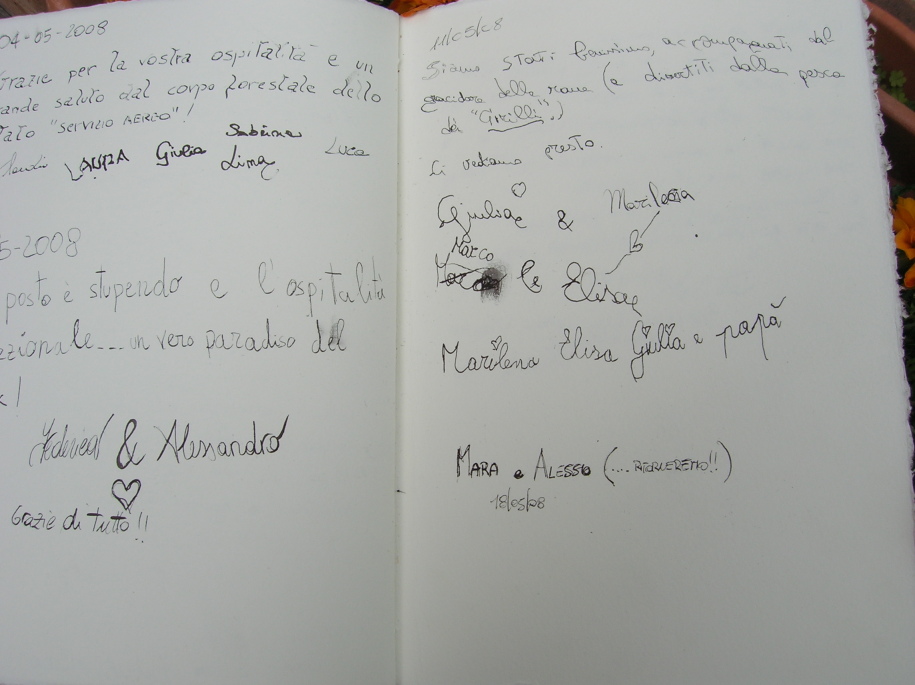 04-05-2008
Grazie per la vostra ospitalità e un
grande saluto dal corpo forestale dello
Stato "SERVIZIO AEREO"!
Sabrina
LAURA Giulia Lima Luca
5-2008
posto è stupendo e l'ospitalità
ezzionale.... un vero paradiso del
!
Federica & Alessandro
Grazie di tutto!!
11/05/08
Siamo STATI benissimo, accompagnati dal
gracidare delle rane (e divertiti dalla pesca
dei "Girilli".)
Ci vediamo presto.
Giulia & Marilena
Marco
Elisa
Marilena Elisa Giulia e papà
MARA e ALESSIO (....RITORNEREMO!!)
18/05/08